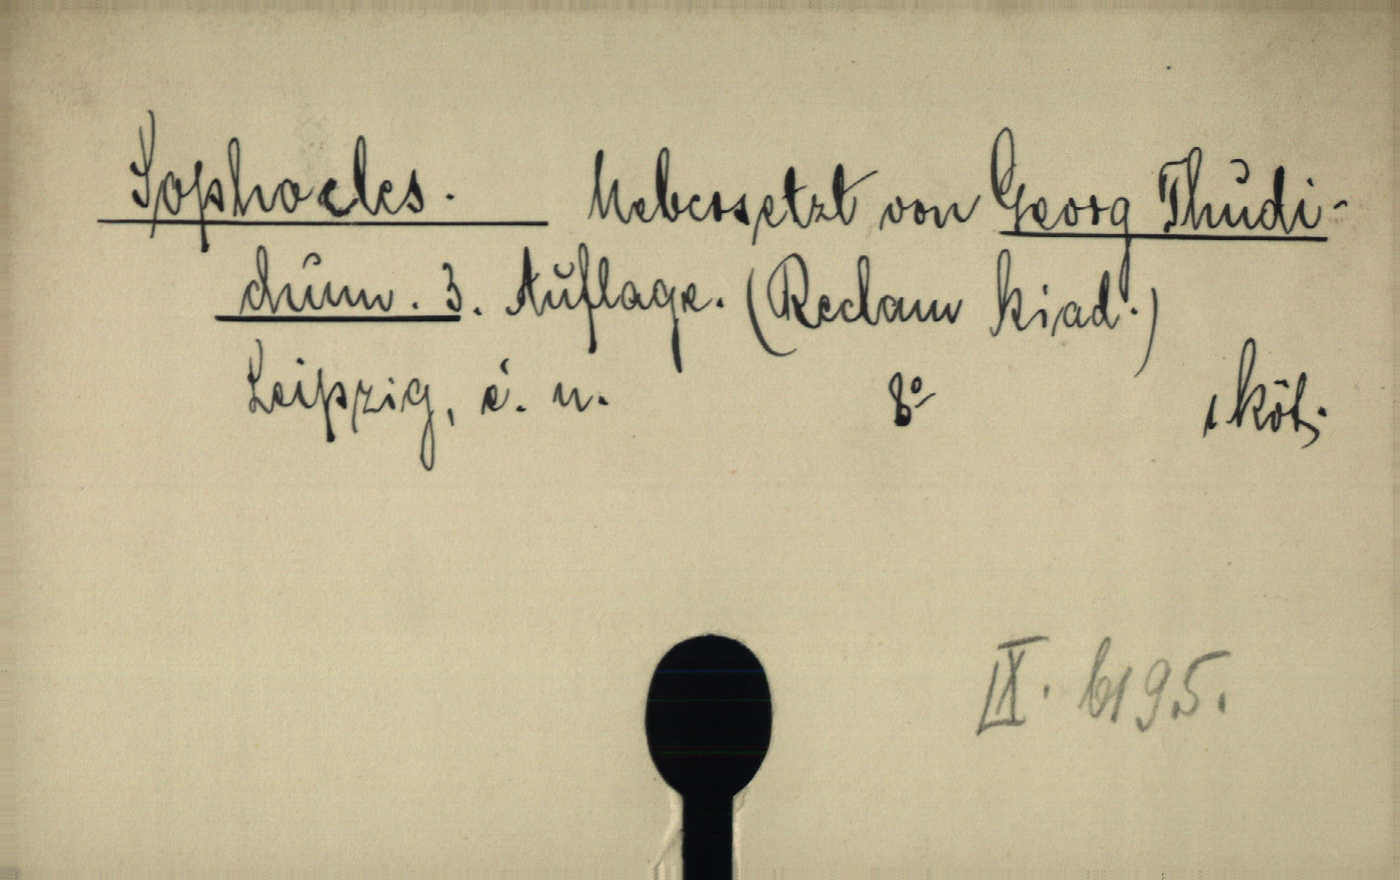 Sophocles. Uebersetzt von Georg Thudi-
chum. 3. Auflage. (Reclam kiad.)
Leipzig, é. n. 8° 1 köt.
IX. 6195.